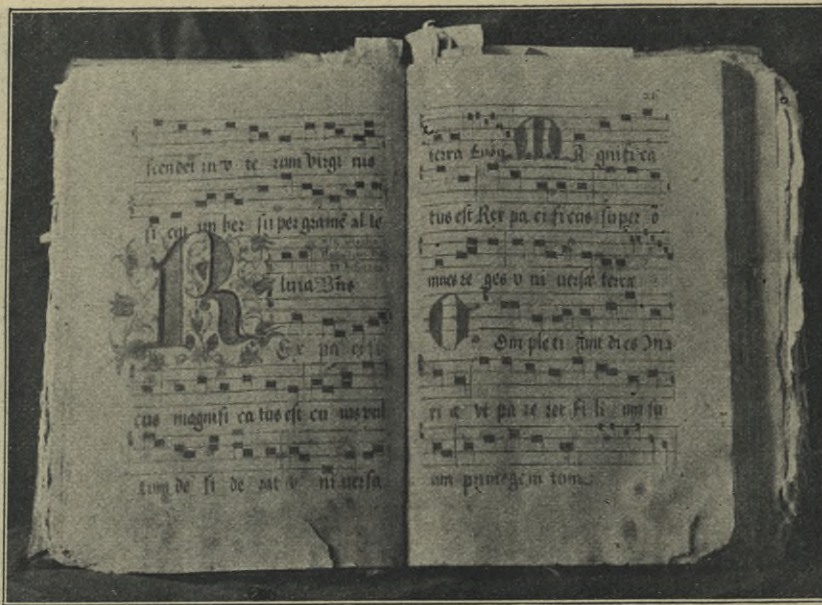 scendet in v te rum virgi nis
si cut im ber su per gramē al le
luia
Ex pa cifi
cus magnifi ca tus est cu ius vul
tum de si de rat v ni uersa
terra
M A gnifi ca
tus est Rex pa ci ficus super o
mnes re ges v ni uersæ terræ
Om ple ti sunt di es Ma
ri æ vt pa re ret fi li um su
um primogeni tum